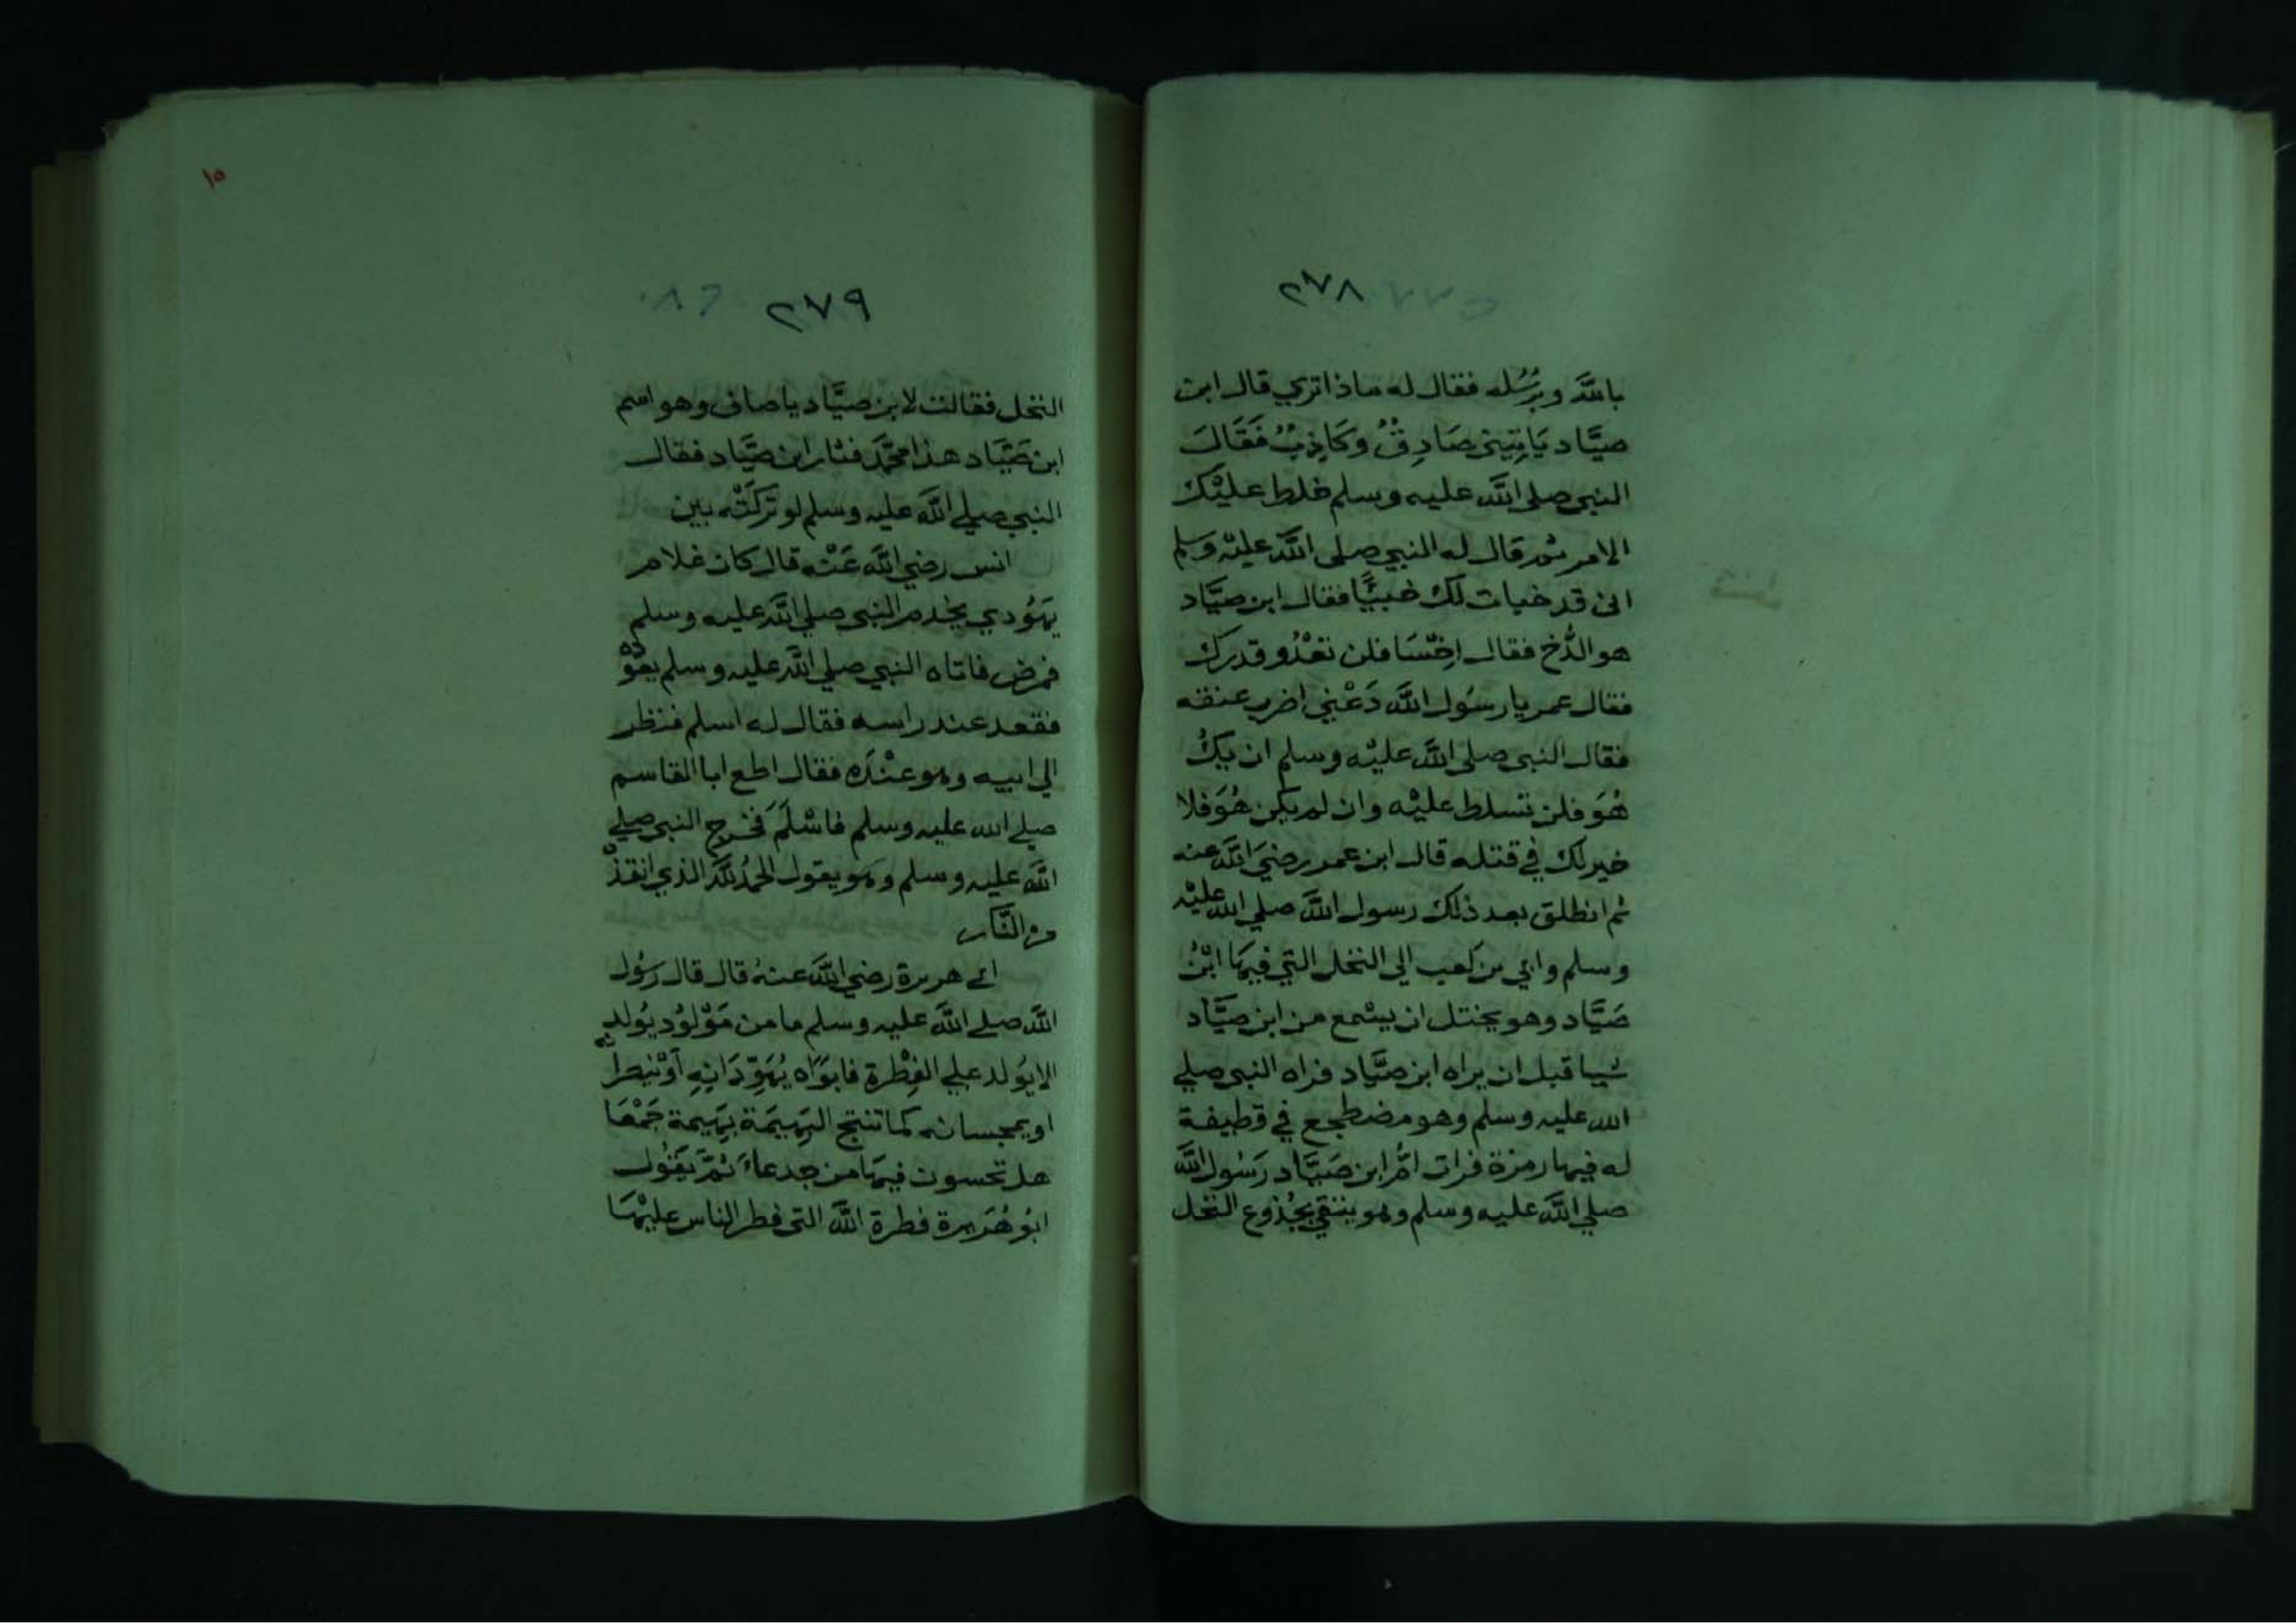 ٢٧٨
بالله وبرُسُله فقال له ماذا تري قال ابن
صيَّاد يَاتِيني صَادِقٌ وكَاذِبٌ فَقَالَ
النبي صلى الله عليه وسلم خلط عليْك
الامر ثم قال له النبي صلى الله عليْه وَسلم
اني قد خبات لك خبيًّا فقال ابن صيَّاد
هو الدُّخ فقال اخْسَا فلن تعْدُو قدرك
فقال عمر يا رسُول الله دَعْني اضرب عنقه
فقال النبي صلى الله عليْه وسلم ان يكُ
هُوَ فلن تسلط عليْه وان لم يكن هُوَ فلا
خير لك في قتله قال ابن عمر رضيَ الله عنه
ثم انطلق بعد ذلك رسول الله صلي الله عليْه
وسلم وابي بن كعب الي النخل التي فيهَا ابْنُ
صَيَّاد وهو يختل ان يسْمع من ابن صيَّاد
شيا قبل ان يراه ابن صيَّاد فراه النبي صلي
الله عليه وسلم وهو مضطجع في قطيفة
له فيها رمزة فرات امُّ ابن صَيَّاد رَسُول الله
صلي الله عليه وسلم وهو يتقي بجُذوع النخل
١٥
٢٧٩
النخل فقالت لابن صيَّاد يا صاف وهو اسم
ابن صَيَّاد هذا محمَّد فثار ابن صيَّاد فقال
النبي صلي الله عليه وسلم لو تركَتْه بين
انس رضي الله عَنْه قال كان غلام
يَهُودي يخدم النبي صلي الله عليه وسلم
فمرض فاتاه النبي صلي الله عليه وسلم يعُوده
فقعد عند راسه فقال له اسلم فنظر
الي ابيه وهو عنْدَه فقال اطع ابا القاسم
صلي الله عليه وسلم فاسْلَمَ فخرج النبي صلي
الله عليه وسلم وهو يقول الحمْدُ لله الذي انقذه
من النَّار
ابي هريرة رضي الله عنهُ قال قال رسُول
الله صلي الله عليه وسلم ما من مَوْلوُد يُولد
الا يُولد علي الفِطْرة فابوَاه يُهَوِّدَانِهِ اَوْ ينصرانه
او يمجسانه كما تنتج البَهيمَة بَهيمة جَمْعَا
هل تحسون فيهَا من جدعاءَ ثمَّ يَقُول
ابُو هُرَيرة فطرة الله التي فطر الناس عليْهَا